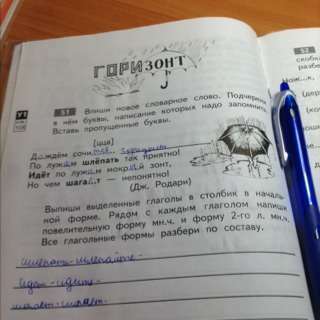 ГОРИЗОНТ
У1
51 Впиши новое словарное слово. Подчеркни
в нём буквы, написание которых надо запомнить.
Вставь пропущенные буквы.
[цца]
По лужам шлёпать так приятно!
Идёт по лужам мокрый зонт,
Но чем шагает — непонятно!
(Дж. Родари)
Выпиши выделенные глаголы в столбик в началь
ной форме. Рядом с каждым глаголом напиши
повелительную форму мн.ч. и форму 2-го л. мн.ч.
Все глагольные формы разбери по составу.
шлепать-шлепайте-
идти-идите-
52
скобка
разбе